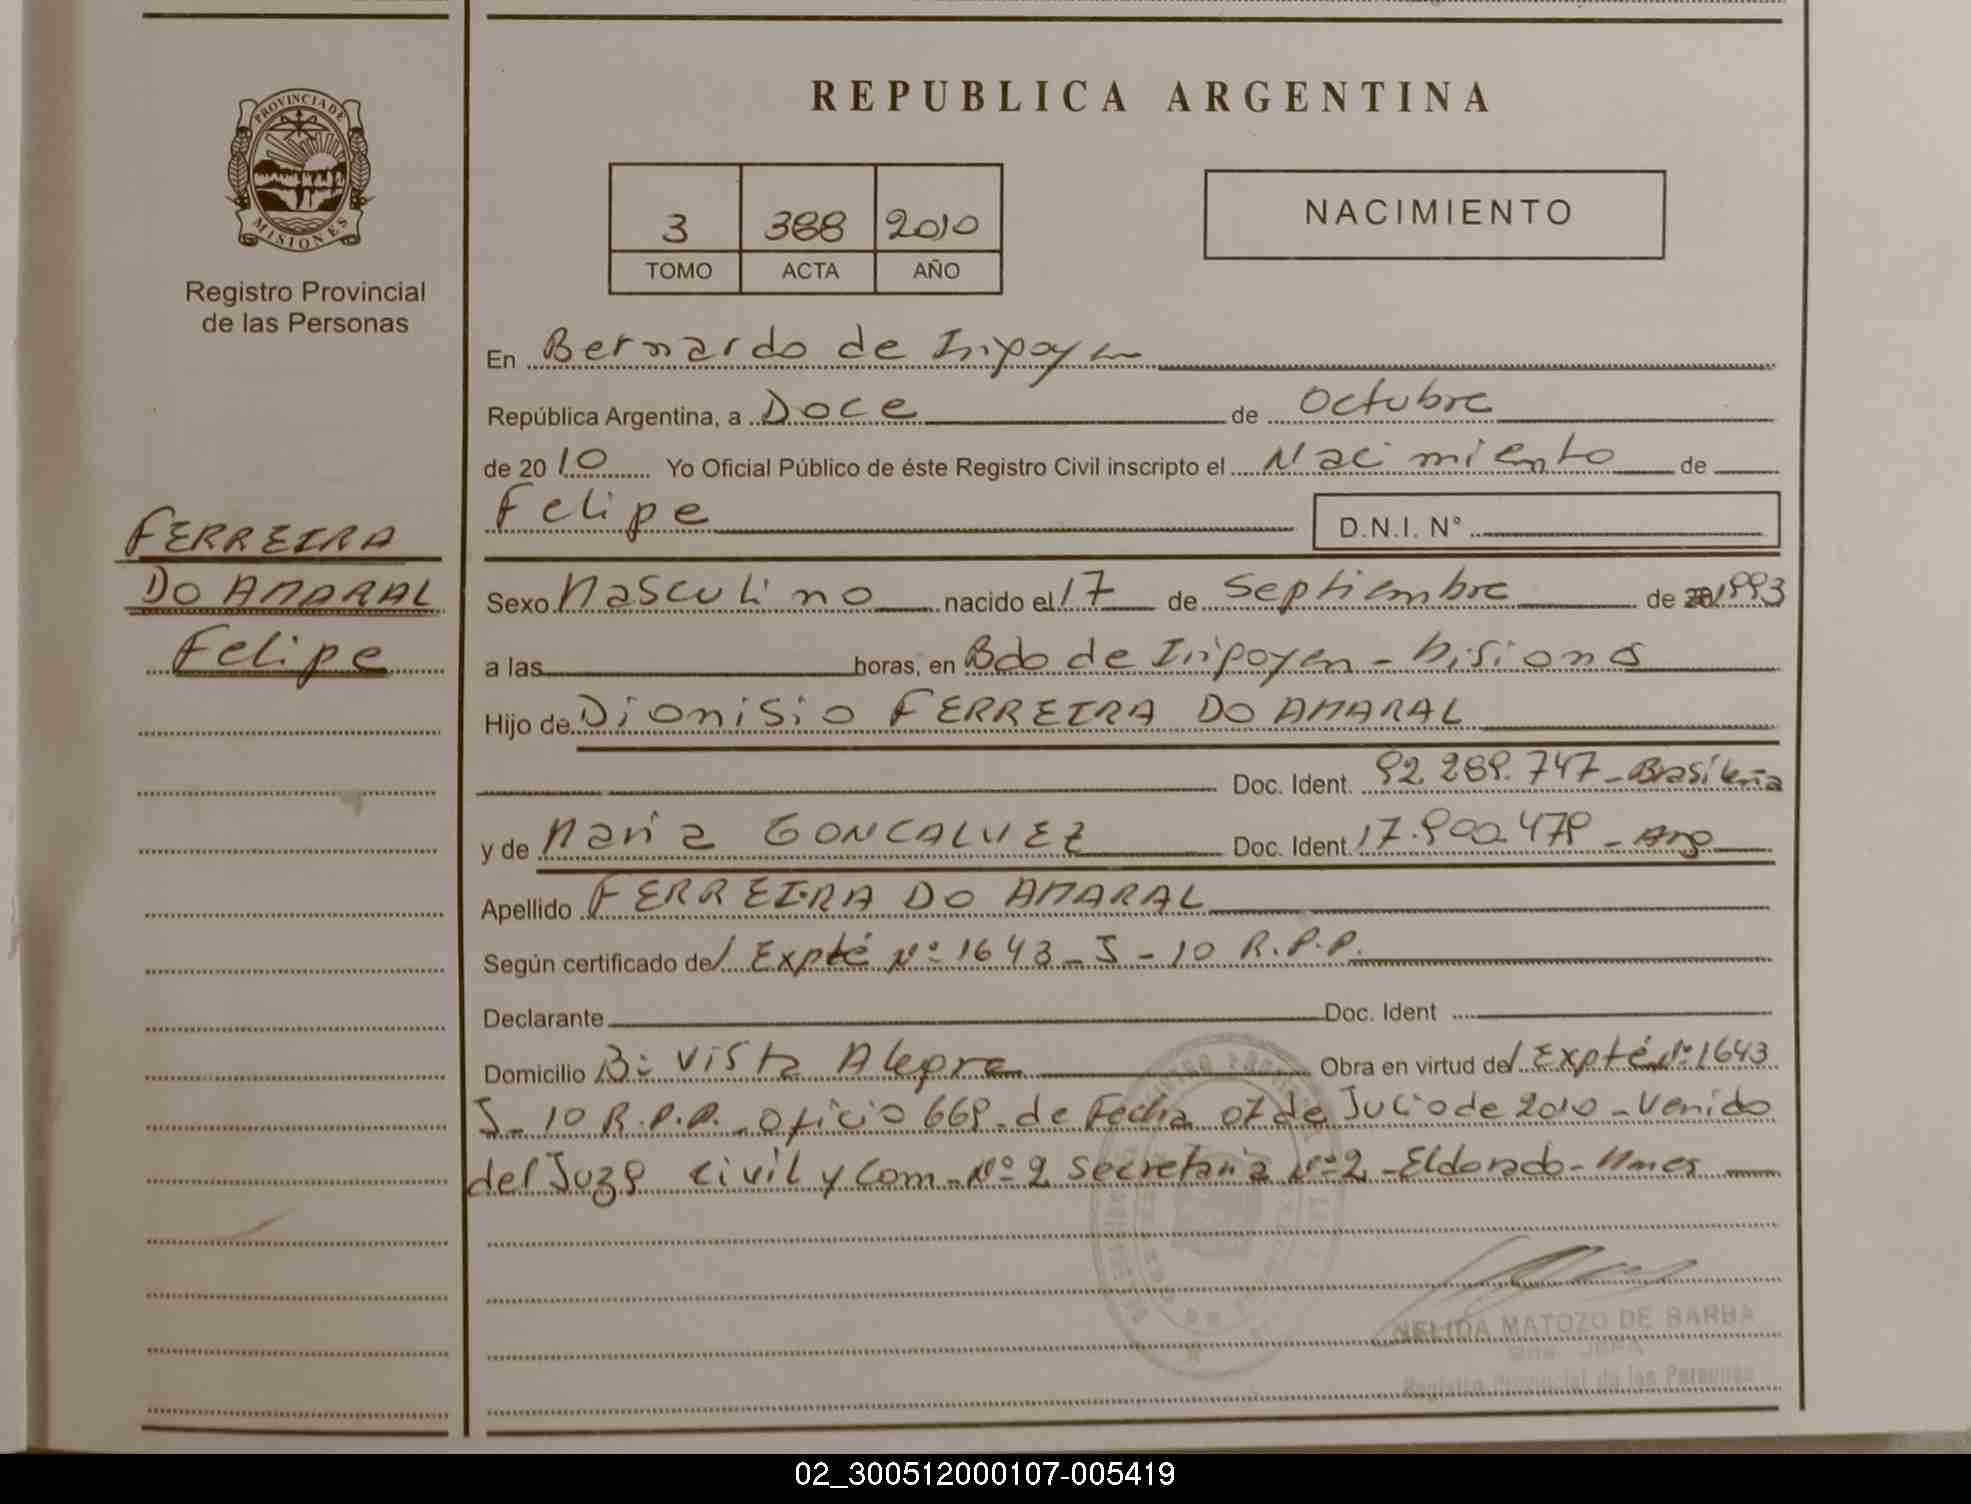 REPUBLICA ARGENTINA
PROVINCIA DE
MISIONES
Registro Provincial
de las Personas
3 388 2010
TOMO ACTA AÑO
NACIMIENTO
En Bernardo de Iripoyen
República Argentina, a Doce de Octubre
de 2010 Yo Oficial Público de éste Registro Civil inscripto el Nacimiento de
Felipe D.N.I. N°
FERREIRA
DO AMARAL
Felipe
Sexo Masculino nacido el 17 de Septiembre de 1993
a las horas, en Bdo de Iripoyen - Misiones
Hijo de Dionisio FERREIRA DO AMARAL
Doc. Ident. 92.289.747 - Brasileña
y de Maria GONCALVEZ Doc. Ident. 17.900.479 - Arg
Apellido FERREIRA DO AMARAL
Según certificado de/ Expte Nº 1643 - J - 10 R.P.P.
Declarante Doc. Ident
Domicilio Bº Vista Alegre Obra en virtud de/ Expte Nº 1643
J - 10 R.P.P. - Oficio 669 - de Fecha 07 de Julio de 2010 - Venido
del Juzg Civil y Com - Nº 2 Secretaria Nº 2 - Eldorado - Mnes
NELIDA MATOZO DE BARBA
JEFA
Registro Provincial de las Personas
02_300512000107-005419